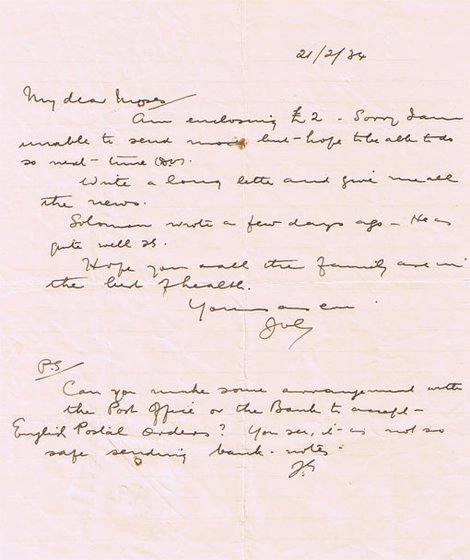 21/2/34
My dear Moses
Am enclosing £2 - Sorry I am
unable to send more but - hope to be able to do
so next - time (DV).
Write a long letter and give me all
the news.
Solomon wrote a few days ago - He is
quite well is.
Hope you & all the family are in
the best of health.
Yours as ever
P.S
Can you make some arrangement with
the Post Office or the Bank to accept -
English Postal Orders? You see, it is not so
safe sending bank-notes.